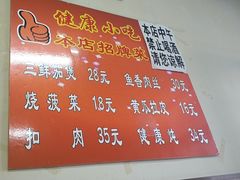 健康小吃
本店招牌菜
本店中午
禁止喝酒
请您谅解
三鲜茄煲 28元 鱼香肉丝 30元
烧菠菜 18元 黄瓜拉皮 16元
扣肉 35元 健康炖 34元